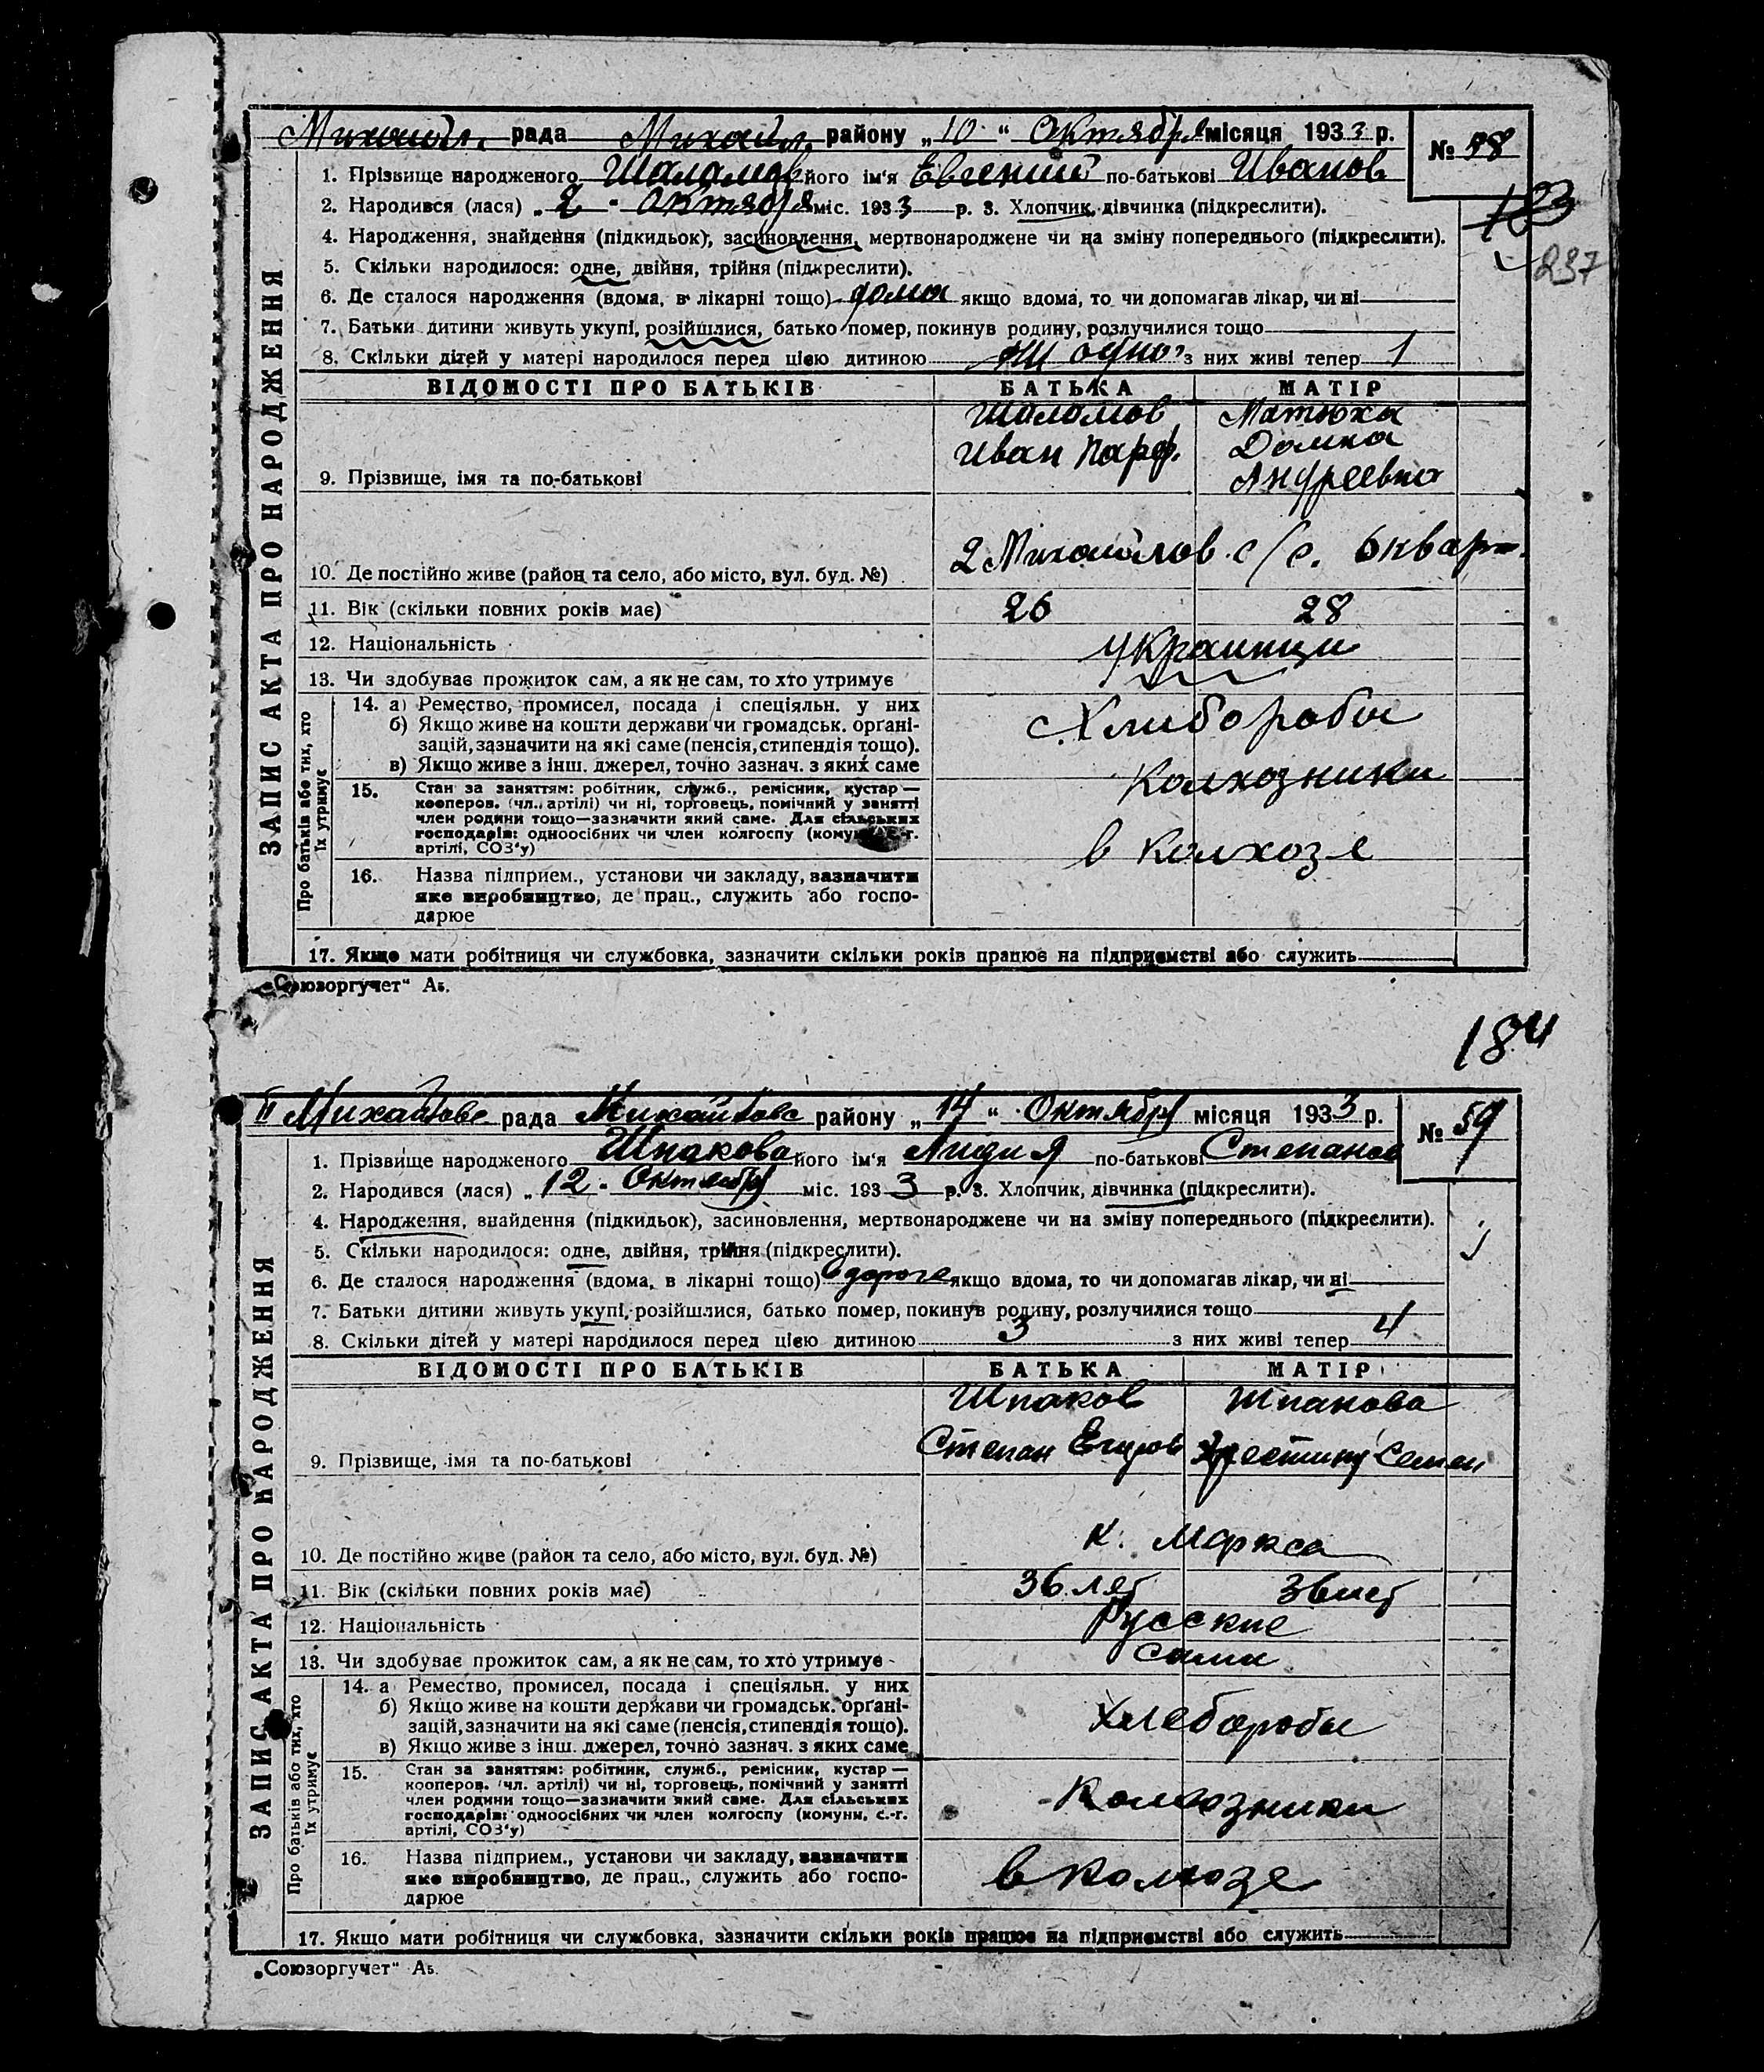 Михайл. рада Михайл. району „10“ Октября місяця 1933 р.
№ 58
1. Прізвище народженого Шаламов його ім‘я Евгений по-батькові Иванов
2. Народився (лася) „2“ Октября міс. 1933 р. 3. Хлопчик, дівчинка (підкреслити).
183
4. Народження, знайдення (підкидьок), засиновлення, мертвонароджене чи на зміну попереднього (підкреслити).
237
5. Скільки народилося: одне, двійня, трійня (підкреслити).
6. Де сталося народження (вдома, в лікарні тощо) дома якщо вдома, то чи допомагав лікар, чи ні
7. Батьки дитини живуть укупі, розійшлися, батько помер, покинув родину, розлучилися тощо
8. Скільки дітей у матері народилося перед цією дитиною з них живі тепер 1
ЗАПИС АКТА ПРО НАРОДЖЕННЯ
ВІДОМОСТІ ПРО БАТЬКІВ БАТЬКА МАТІР
Шаламов Матюха
Иван Парф. Домна
9. Прізвище, імя та по-батькові Андреевна
2 Михайлов. с/с. 6 кварт.
10. Де постійно живе (район та село, або місто, вул. буд. №)
11. Вік (скільки повних років має) 26 28
12. Національність украинци
13. Чи здобуває прожиток сам, а як не сам, то хто утримує
Про батьків або тих, хто їх утримує
14. а) Ремество, промисел, посада і спеціяльн. у них
б) Якщо живе на кошти держави чи громадськ. органі- Хлибороби
зацій, зазначити на які саме (пенсія, стипендія тощо).
в) Якщо живе з інш. джерел, точно зазнач. з яких саме
15. Стан за заняттям: робітник, служб., ремісник, кустар — Колхозники
кооперов. (чл. артілі) чи ні, торговець, помічний у занятті
член родини тощо—зазначити який саме. Для сільських
господарів: одноосібних чи член колгоспу (комуни, с.-г.
артілі, СОЗ‘у) в колхозе
16. Назва підприєм., установи чи закладу, зазначити
яке виробництво, де прац., служить або госпо-
дарює
17. Якщо мати робітниця чи службовка, зазначити скільки років працює на підприємстві або служить
„Союзоргучет“ Аз.
184
II Михайлове рада Михайлове району „14“ Октября місяця 1933 р.
№ 59
1. Прізвище народженого Шпакова його ім‘я Лидия по-батькові Степанов
2. Народився (лася) „12. Октября міс. 1933 р. 3. Хлопчик, дівчинка (підкреслити).
4. Народження, знайдення (підкидьок), засиновлення, мертвонароджене чи на зміну попереднього (підкреслити).
5. Скільки народилося: одне, двійня, трійня (підкреслити).
6. Де сталося народження (вдома, в лікарні тощо) в дороге якщо вдома, то чи допомагав лікар, чи ні
7. Батьки дитини живуть укупі, розійшлися, батько помер, покинув родину, розлучилися тощо
8. Скільки дітей у матері народилося перед цією дитиною 3 з них живі тепер 4
ЗАПИС АКТА ПРО НАРОДЖЕННЯ
ВІДОМОСТІ ПРО БАТЬКІВ БАТЬКА МАТІР
Шпаков Шпакова
Степан Егоров Хрестину Семен
9. Прізвище, імя та по-батькові
К. Маркса
10. Де постійно живе (район та село, або місто, вул. буд. №)
11. Вік (скільки повних років має) 36 лет 36 лет
12. Національність Русские
13. Чи здобуває прожиток сам, а як не сам, то хто утримує Сами
Про батьків або тих, хто їх утримує
14. а Ремество, промисел, посада і спеціяльн. у них
б) Якщо живе на кошти держави чи громадськ. органі- Хлебороби
зацій, зазначити на які саме (пенсія, стипендія тощо).
в) Якщо живе з інш. джерел, точно зазнач. з яких саме
15. Стан за заняттям: робітник, служб., ремісник, кустар —
кооперов. (чл. артілі) чи ні, торговець, помічний у занятті Колхозники
член родини тощо—зазначити який саме. Для сільських
господарів: одноосібних чи член колгоспу (комуни, с.-г.
артілі, СОЗ‘у)
16. Назва підприєм., установи чи закладу, зазначити
яке виробництво, де прац., служить або госпо- в колхозе
дарює
17. Якщо мати робітниця чи службовка, зазначити скільки років працює на підприємстві або служить
„Союзоргучет“ Аз.